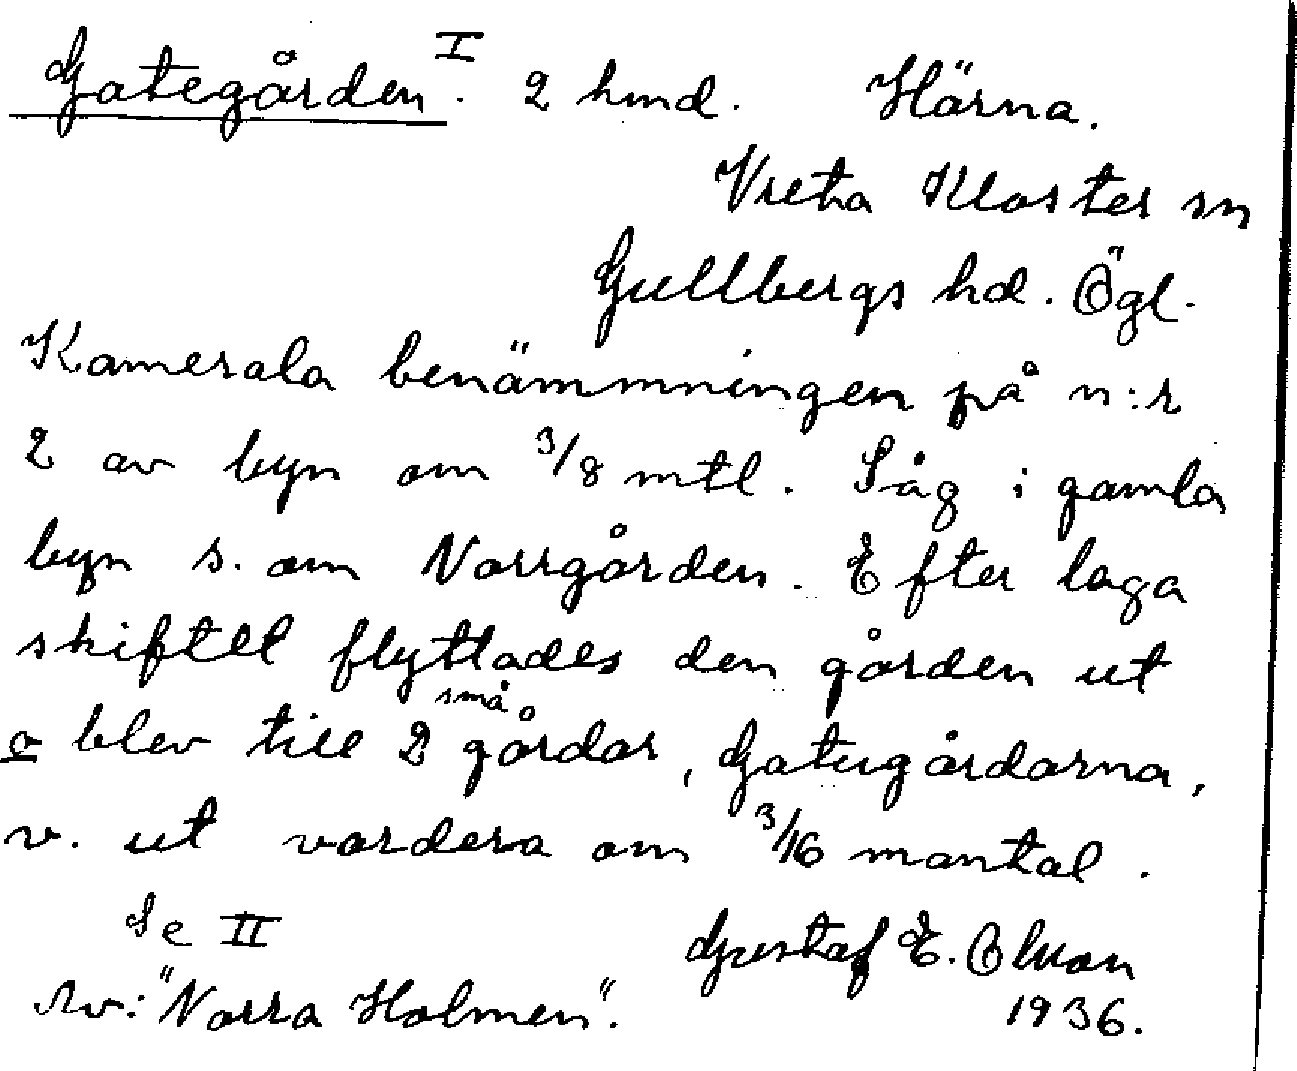 Gategården I. 2 hmd. Härna.
Vreta Kloster sn
Gullbergs hd. Ögl.
Kamerala benämmningen på n:r
2 av byn om 3/8 mtl. Låg i gamla
byn s. om Norrgården. Efter laga
skiftet flyttades den gården ut
o blev till 2 små gårdar, Gategårdarna,
v. ut vardera om 3/16 mantal.
Se II Gustaf E. Olsson
Av: "Norra Holmen". 1936.